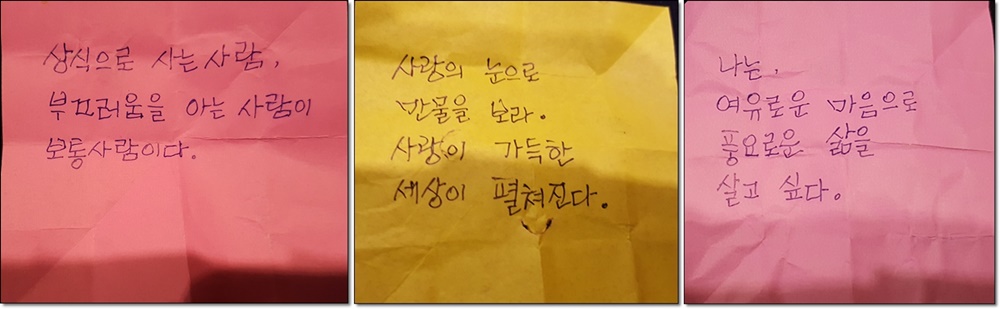 상식으로 사는 사람,
부끄러움을 아는 사람이
보통사람이다.
사랑의 눈으로
만물을 보라.
사랑이 가득한
세상이 펼쳐진다.
나는,
여유로운 마음으로
풍요로운 삶을
살고 싶다.